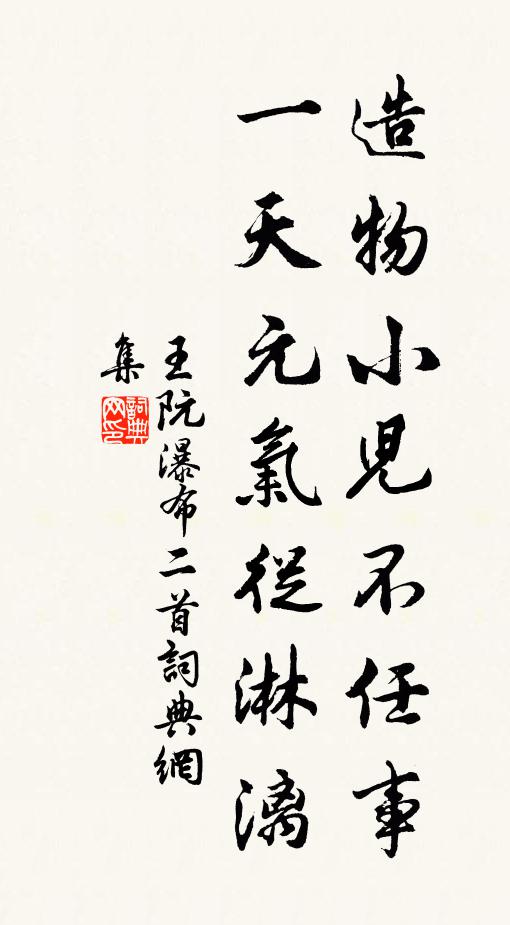 造物小児不任事
一天元氣從淋漓
王阮瀑布二首詞典網
集
詞典
网印